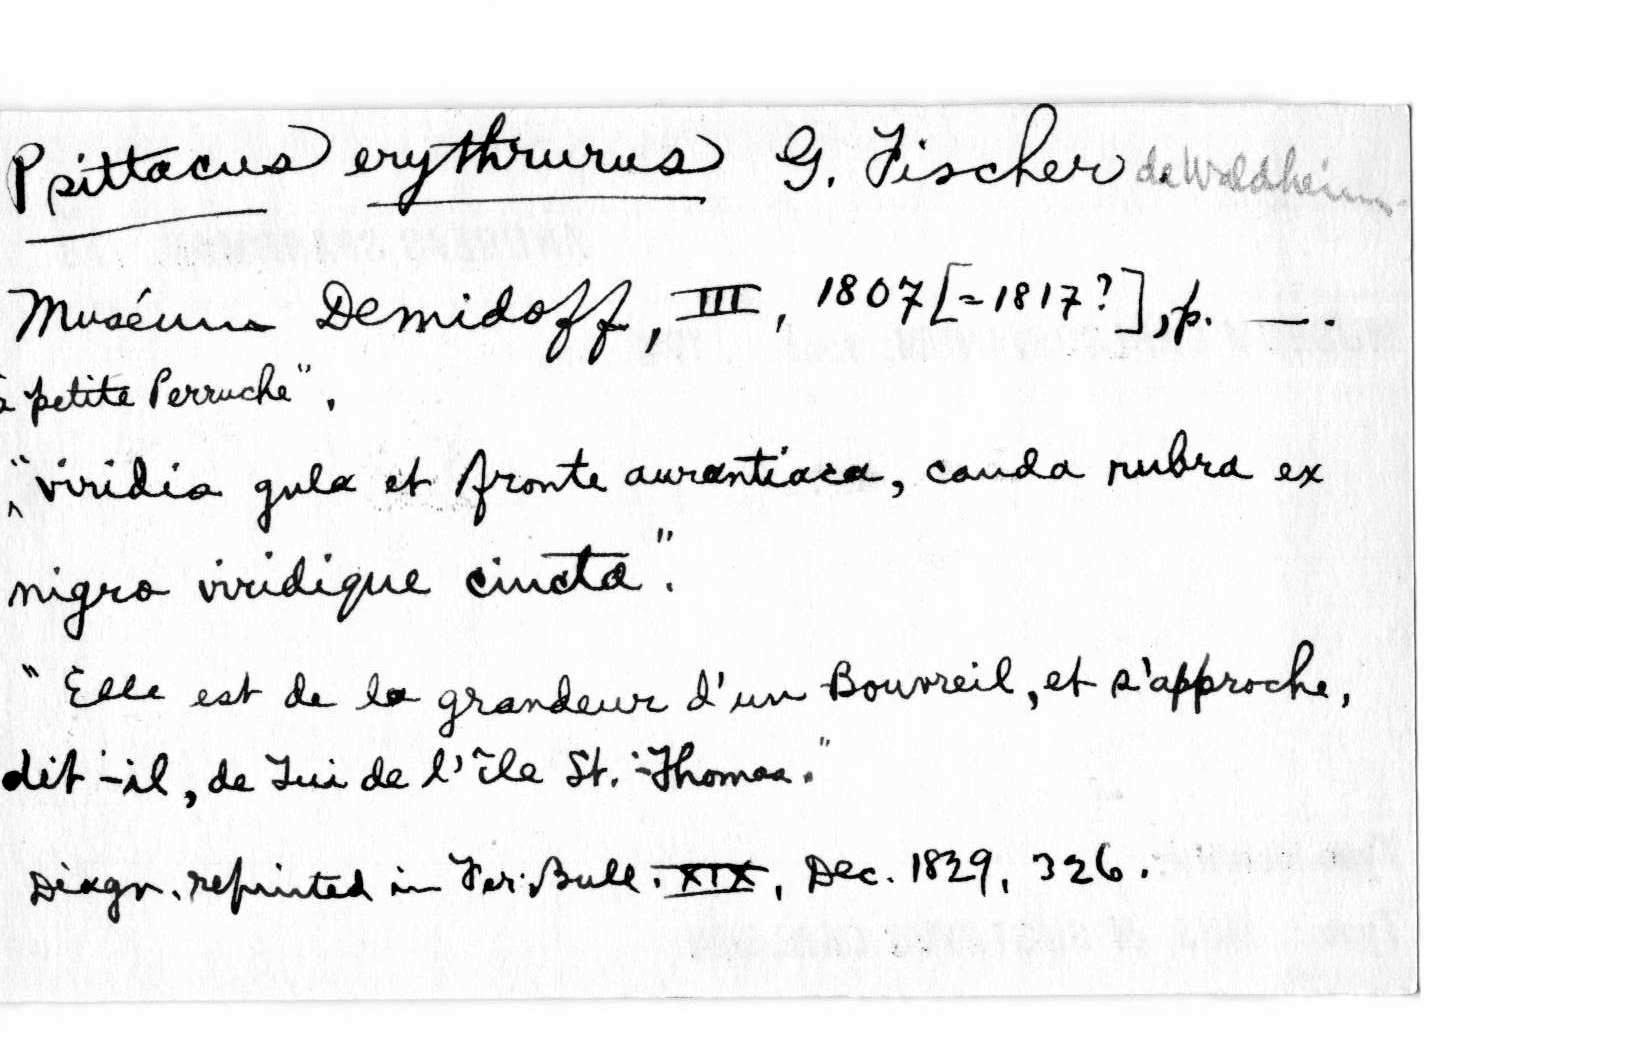 Psittacus erythrurus G. Fischer de Waldheim
Muséum Demidoff, III, 1807 [=1817?], p. —.
petite Perruche",
"viridis gula et fronte aurantiaca, cauda rubra ex
nigro viridique cincta".
"Elle est de la grandeur d'un Bouvreil, et s'approche,
dit-il, de Tui de l'île St.-Thomas."
Diagn. reprinted in Fer. Bull. XIX, Dec. 1829, 326.